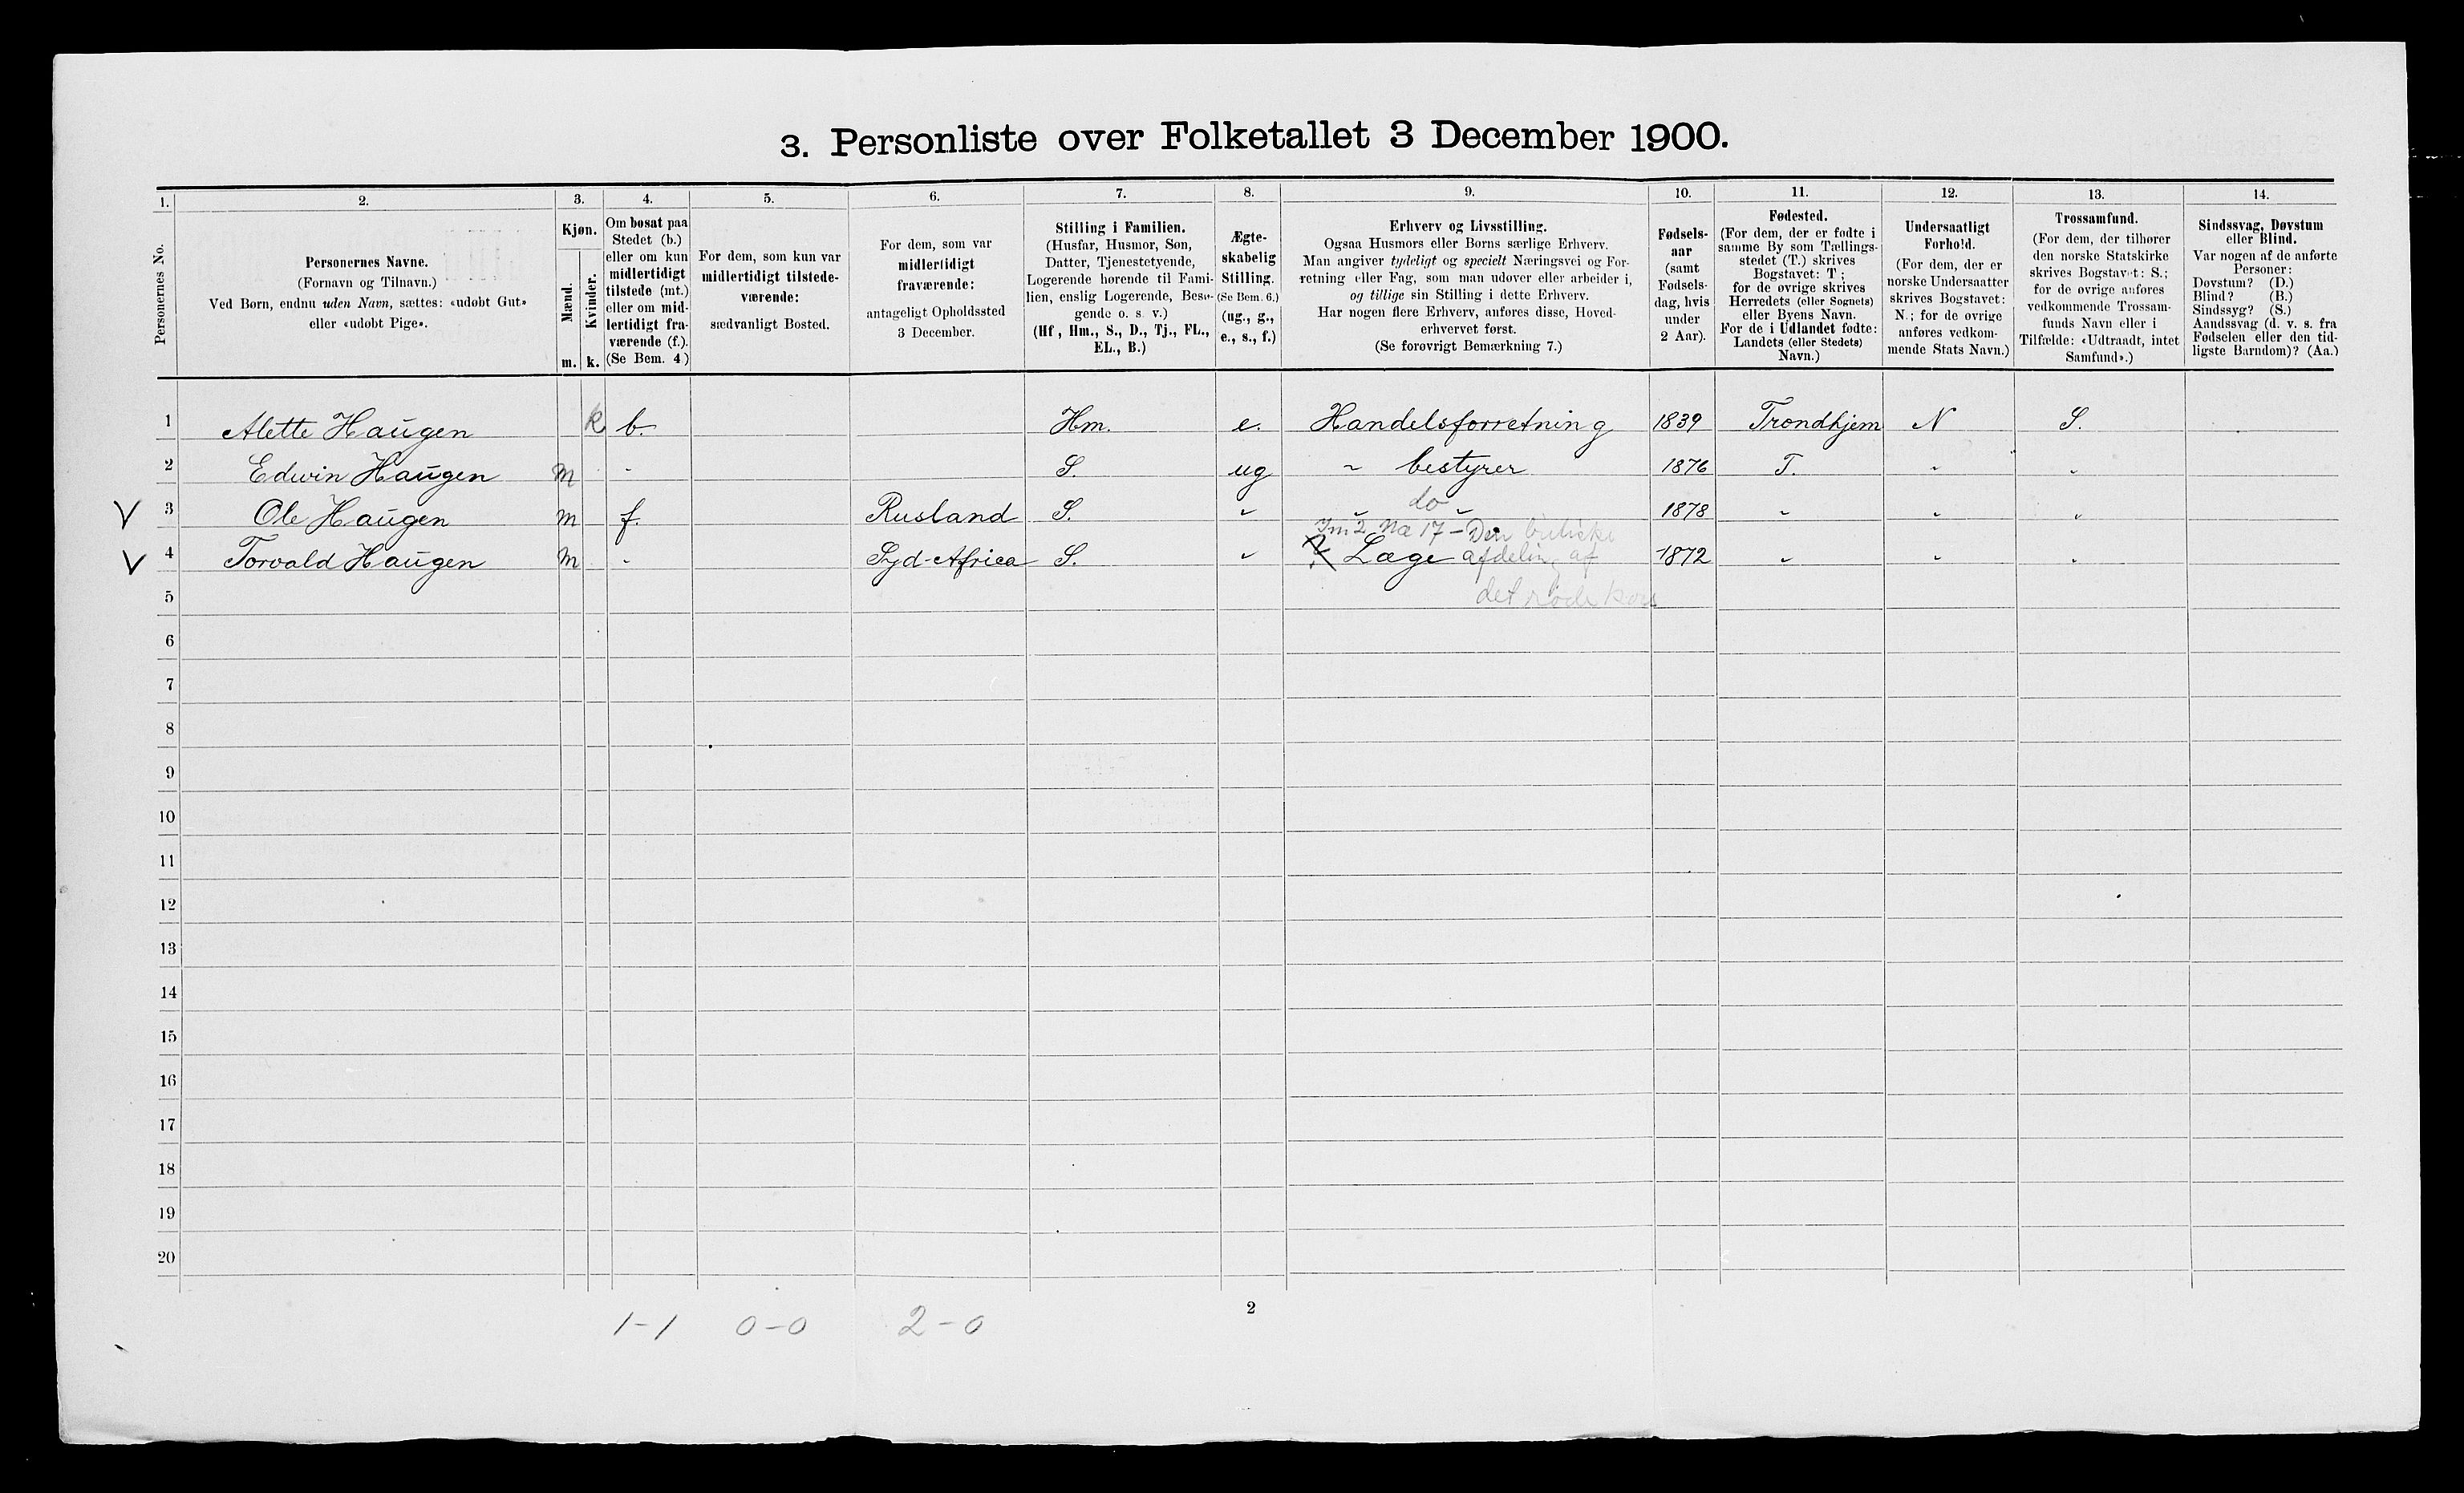 3. Personliste over Folketallet 3 December 1900.
1. 2. 3. 4. 5. 6. 7. 8. 9. 10. 11. 12. 13. 14.
Personernes No.
Personernes Navne.
(Fornavn og Tilnavn.)
Ved Børn, endnu uden Navn, sættes: «udøbt Gut»
eller «udøbt Pige».
Kjøn.
Mænd.
Kvinder.
m. k.
Om bosat paa
Stedet (b.)
eller om kun
midlertidigt
tilstede (mt.)
eller om mid-
lertidigt fra-
værende (f.).
(Se Bem. 4.)
For dem, som kun var
midlertidigt tilstede-
værende:
sædvanligt Bosted.
For dem, som var
midlertidigt
fraværende:
antageligt Opholdssted
3 December.
Stilling i Familien.
(Husfar, Husmor, Søn,
Datter, Tjenestetyende,
Logerende hørende til Fami-
lien, enslig Logerende, Besø-
gende o. s. v.)
(Hf , Hm., S., D., Tj., FL.,
EL., B.)
Ægte-
skabelig
Stilling.
(Se Bem. 6.)
(ug., g.,
e., s., f.)
Erhverv og Livsstilling.
Ogsaa Husmors eller Børns særlige Erhverv.
Man angiver tydeligt og specielt Næringsvei og For-
retning eller Fag, som man udøver eller arbeider i,
og tillige sin Stilling i dette Erhverv.
Har nogen flere Erhverv, anføres disse, Hoved-
erhvervet først.
(Se forøvrigt Bemærkning 7.)
Fødsels-
aar
(samt
Fødsels-
dag, hvis
under
2 Aar).
Fødested.
(For dem, der er fødte i
samme By som Tællings-
stedet (T.) skrives
Bogstavet: T ;
for de øvrige skrives
Herredets (eller Sognets)
eller Byens Navn.
For de i Udlandet fødte:
Landets (eller Stedets)
Navn.)
Undersaatligt
Forhold.
(For dem, der er
norske Undersaatter
skrives Bogstavet:
N.; for de øvrige
anføres vedkom-
mende Stats Navn.)
Trossamfund.
(For dem, der tilhører
den norske Statskirke
skrives Bogstavet: S.;
for de øvrige anføres
vedkommende Trossam-
funds Navn eller i
Tilfælde: «Udtraadt, intet
Samfund».)
Sindssvag, Døvstum
eller Blind.
Var nogen af de anførte
Personer:
Døvstum? (D.)
Blind? (B.)
Sindssyg? (S.)
Aandssvag (d. v. s. fra
Fødselen eller den tid-
ligste Barndom)? (Aa.)
1 Alette Haugen k b. Hm. e. Handelsforretning 1839 Trondhjem N S.
2 Edwin Haugen m " S. ug " bestyrer 1876 T. " "
V 3 Ole Haugen m f. Rusland S. " " do " 1878 " " "
17 - Den
V 4 Torvald Haugen m " Syd-Africa S. " Læge afdeling af 1872 " " "
5 det røde kors
6
7
8
9
10
11
12
13
14
15
16
17
18
19
20
1-1 0-0 2-0 2